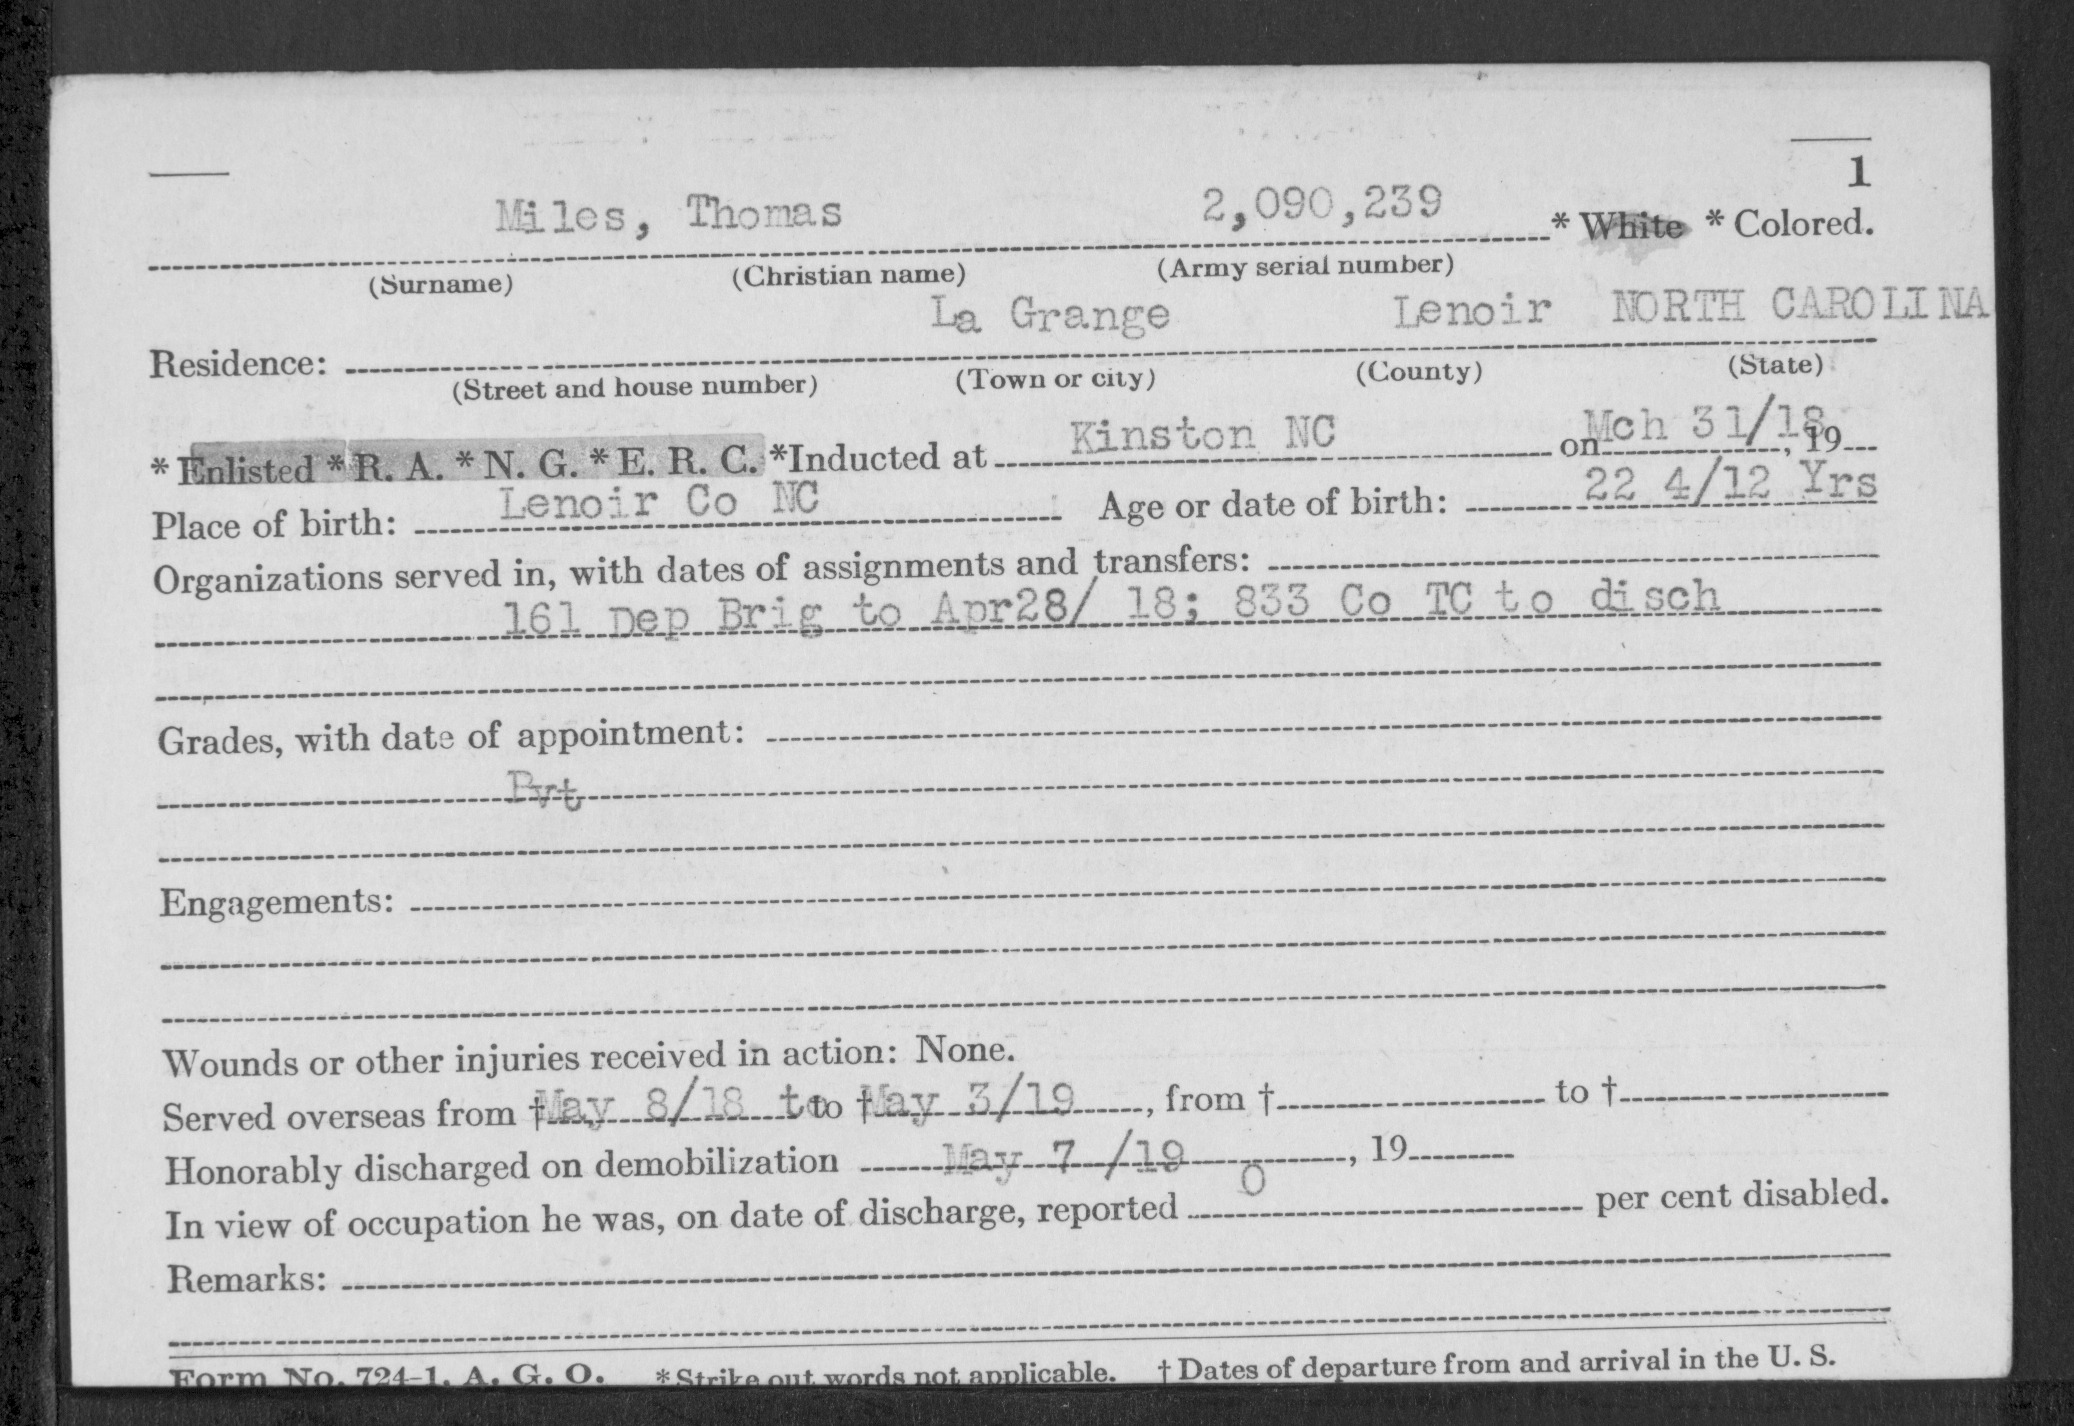 1
Miles, Thomas 2,090,239 * White * Colored.
(Surname) (Christian name) (Army serial number)
La Grange Lenoir NORTH CAROLINA
Residence:
(Street and house number) (Town or city) (County) (State)
* Enlisted * R. A. * N. G. * E. R. C. *Inducted at Kinston NC on Mch 31/18, 19
Place of birth: Lenoir Co NC Age or date of birth: 22 4/12 Yrs
Organizations served in, with dates of assignments and transfers:
161 Dep Brig to Apr28/ 18; 833 Co TC to disch
Grades, with date of appointment:
Pvt
Engagements:
Wounds or other injuries received in action: None.
Served overseas from † May 8/18 to to † May 3/19, from † to †
Honorably discharged on demobilization May 7 /19, 19
In view of occupation he was, on date of discharge, reported 0 per cent disabled.
Remarks:
Form No. 724-1, A. G. O. * Strike out words not applicable. † Dates of departure from and arrival in the U. S.